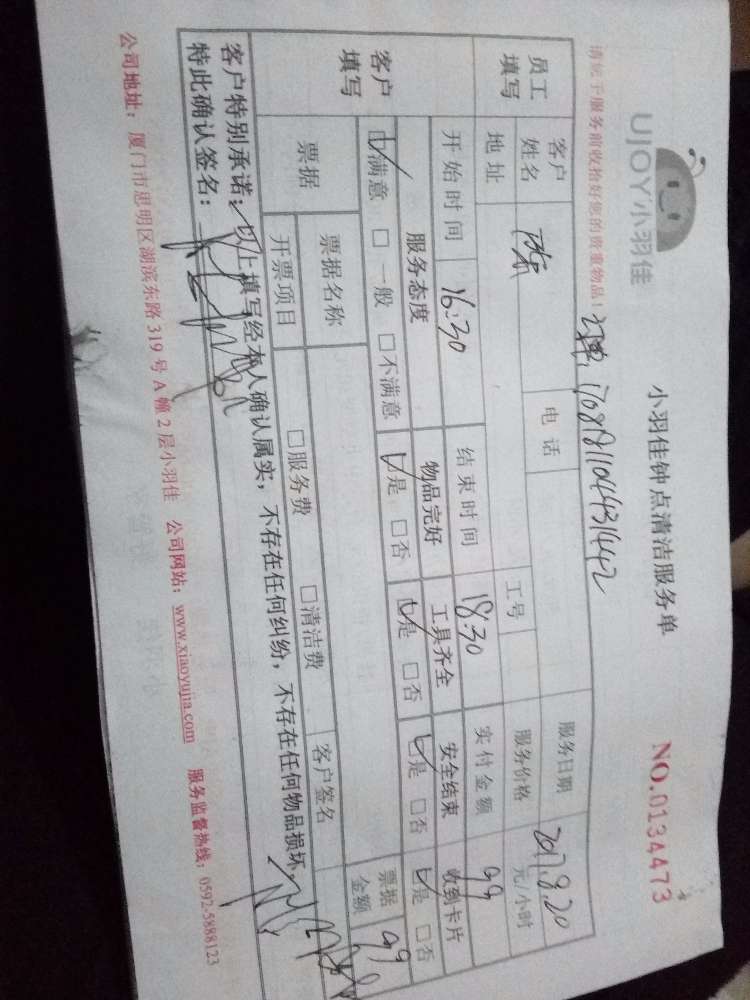 UJOY小羽佳
小羽佳钟点清洁服务单
NO.0134473
请您于服务前收拾好您的贵重物品!
订单:170881104431442
员工填写
客户姓名 陈 电话 服务日期 2017.8.20
地址 工号 服务价格 元/小时
客户填写
开始时间 16:30 结束时间 18:30 实付金额 99
服务态度 物品完好 工具齐全 安全结束 收到卡片
☑满意 □一般 □不满意 ☑是 □否 ☑是 □否 ☑是 □否 ☑是 □否
票据 票据名称 票据金额 99
开票项目 □服务费 □清洁费 客户签名
客户特别承诺:以上填写经本人确认属实,不存在任何纠纷,不存在任何物品损坏,
特此确认签名:
公司地址:厦门市思明区湖滨东路319号A幢2层小羽佳 公司网站:www.xiaoyujia.com 服务监督热线:0592-5888123